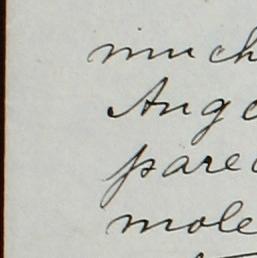 much
Ange
pared
mole